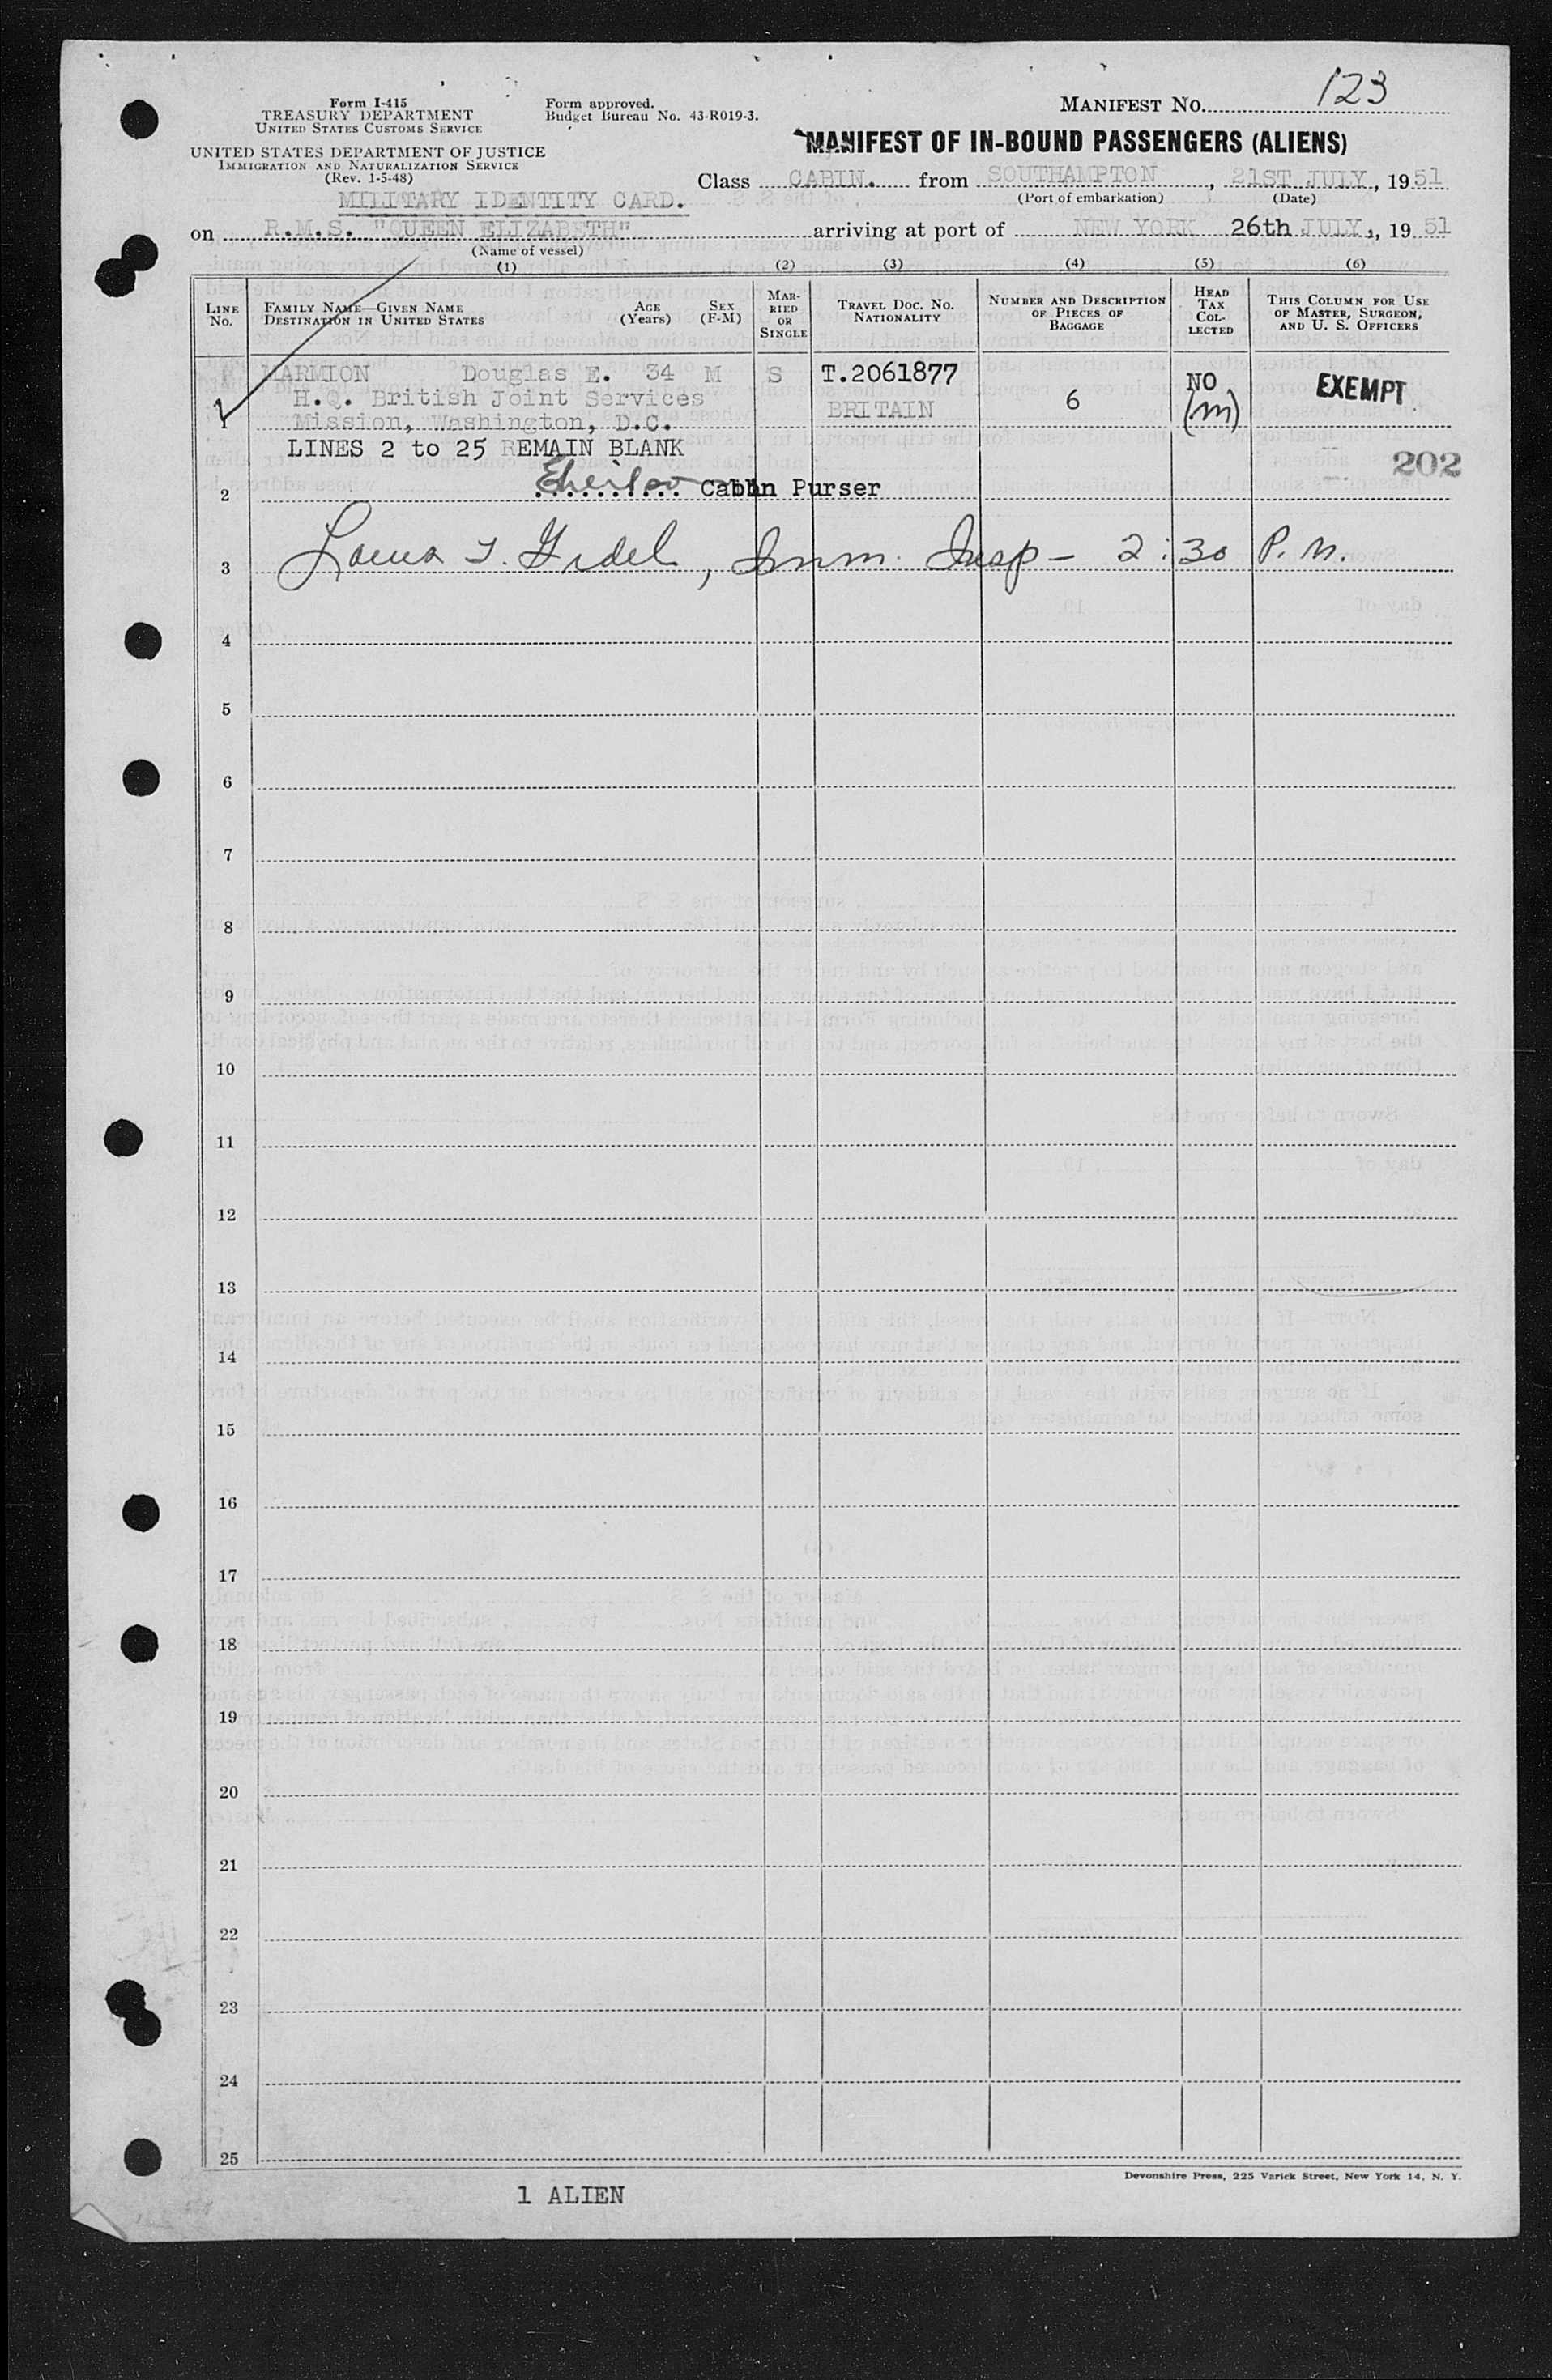 123
Form I-415
TREASURY DEPARTMENT
UNITED STATES CUSTOMS SERVICE
Form approved.
Budget Bureau No. 43-R019-3.
MANIFEST NO.
UNITED STATES DEPARTMENT OF JUSTICE
IMMIGRATION AND NATURALIZATION SERVICE
(Rev. 1-5-48)
MANIFEST OF IN-BOUND PASSENGERS (ALIENS)
MILITARY IDENTITY CARD.
Class CABIN. from SOUTHAMPTON, 21ST JULY, 1951
(Port of embarkation) (Date)
on R.M.S. "QUEEN ELIZABETH" arriving at port of NEW YORK 26th JULY, 1951
(Name of vessel)
(1) (2) (3) (4) (5) (6)
LINE No.
FAMILY NAME—GIVEN NAME
DESTINATION IN UNITED STATES
AGE (Years)
SEX (F-M)
MAR-
RIED
OR
SINGLE
TRAVEL DOC. NO.
NATIONALITY
NUMBER AND DESCRIPTION
OF PIECES OF
BAGGAGE
HEAD
TAX
COL-
LECTED
THIS COLUMN FOR USE
OF MASTER, SURGEON,
AND U. S. OFFICERS
1 MARMION Douglas E. 34 M S T.2061877
H.Q. British Joint Services
Mission, Washington, D.C. BRITAIN 6 NO (m) EXEMPT
LINES 2 to 25 REMAIN BLANK
202
2 Cabin Purser
3 T. Fidel, Imm. Insp - 2:30 P.M.
4
5
6
7
8
9
10
11
12
13
14
15
16
17
18
19
20
21
22
23
24
25
Devonshire Press, 225 Varick Street, New York 14, N. Y.
1 ALIEN